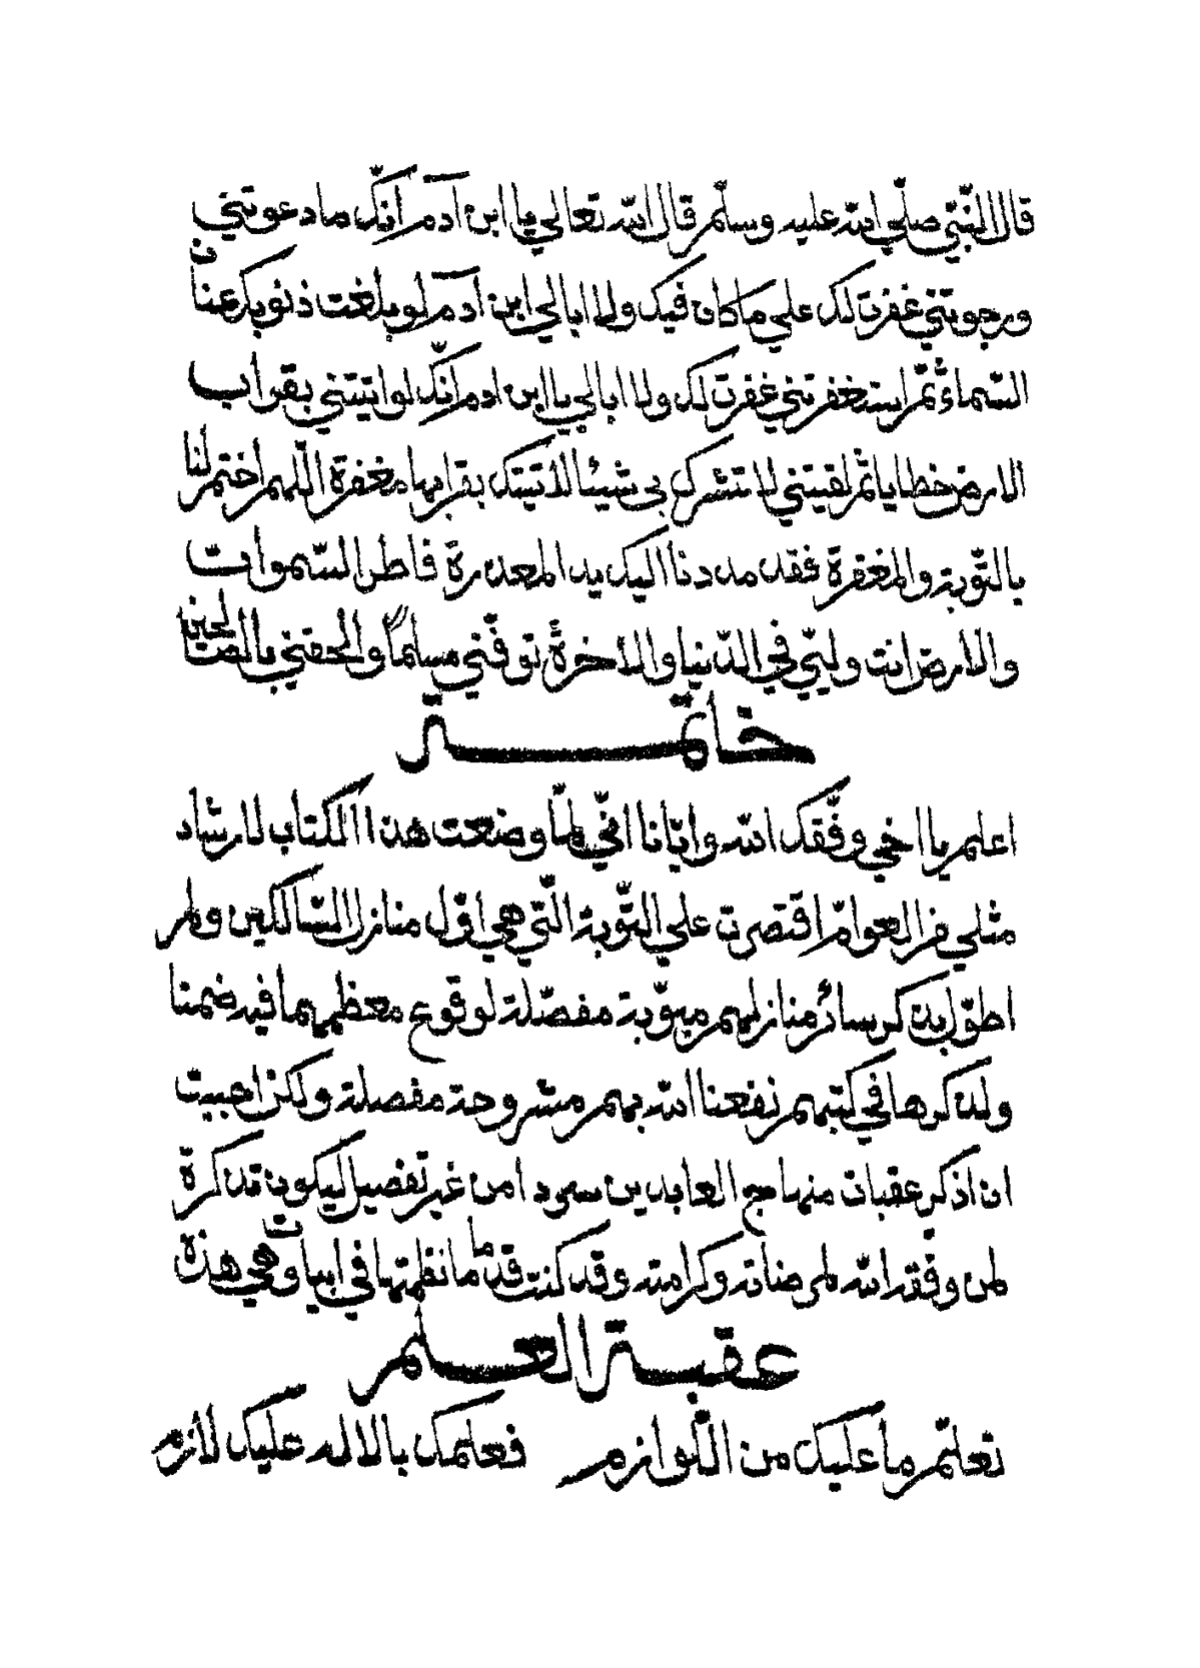 قال النّبيّ صلّي الله عليه وسلّم قال الله تعالي يا ابن آدم أنّك ما دعوتني
ورجوتني غفرت لك علي ما كان فيك ولا ابالي يا ابن آدم لو بلغت ذنوبك عنان
السّماء ثمّ استغفرتني غفرت لك ولا ابالي يا ابن ادم انّك لو اتيتني بقراب
الارض خطايا ثمّ لقيتني لا تشرك بي شيئا لأتيتك بقرابها مغفرة اللّهم اختم لنا
بالتّوبة والمغفرة فقد مددنا اليك يد المعذرة فاطر السّموات
والارض انت وليّي في الدّنيا والاخرة توفّني مسلمًا والحقني بالصّالحين
خاتمة
اعلم يا اخي وفّقك الله وايّانا انّي لمّا وضعت هذا الكتاب لارشاد
مثلي من العوامّ اقتصرت علي التّوبة الّتي هي اوّل منازل السّالكين ولم
اطوّل بذكر سائر منازلهم مبوّبة مفصّلة لوقوع معظمهما فيه ضمنا
ولذكرها في كتبهم نفعنا الله بهم مشروحة مفصلة ولكن احببت
ان اذكر عقبات منهاج العابدين سردا من غير تفصيل ليكون تذكرة
لمن وفّقه الله لمرضاته وكرامته وقد كنت قدّما نظمتها في ابيات وهي هذه
عقبة العلم
تعلّم ما عليك من اللّوازم فعلمك بالاله عليك لازم